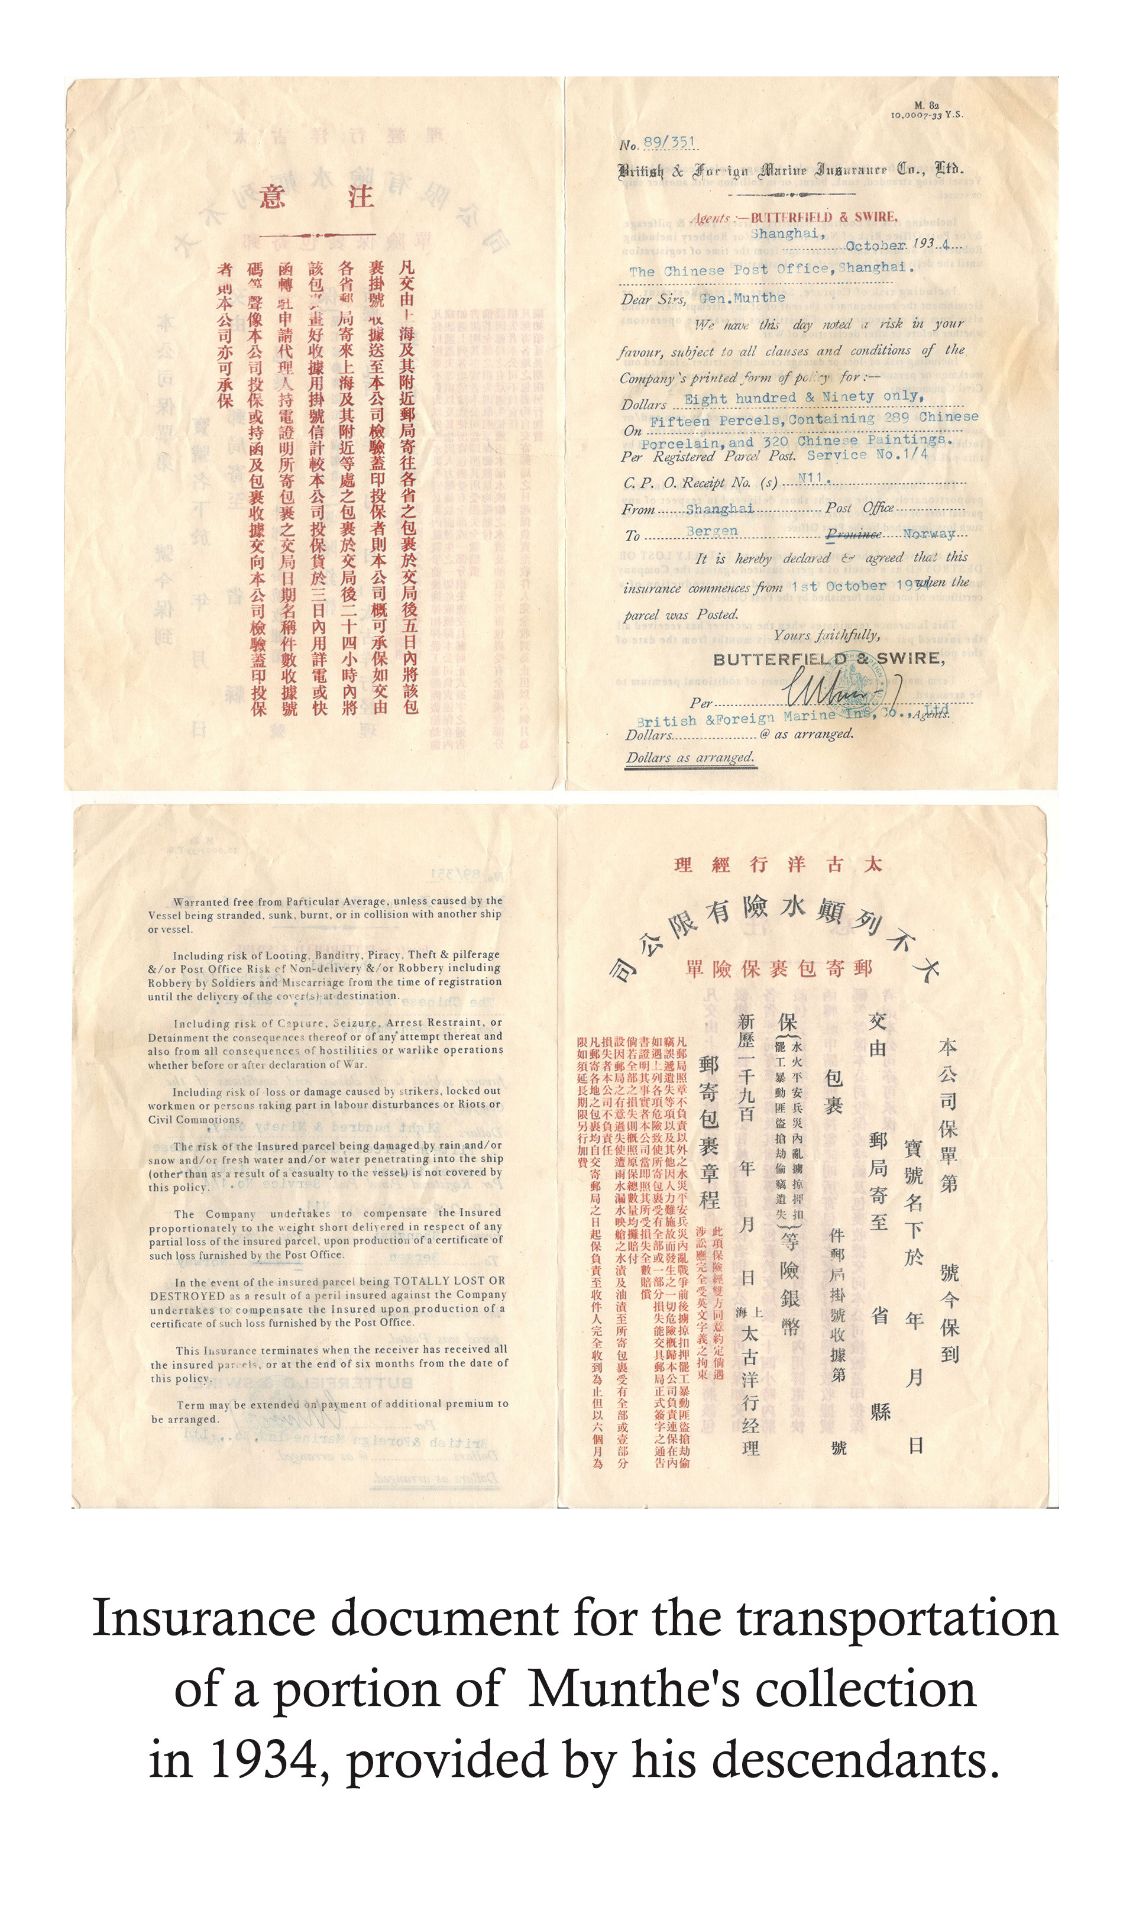 意 注
凡交由上海及其附近郵局寄往各省之包裹於交局後五日內將該包
裹掛號收據送至本公司檢驗蓋印投保者則本公司概可承保如交由
各省郵局寄來上海及其附近等處之包裹於交局後二十四小時內將
該包裹畫好收據用掛號信計較本公司投保貨於三日內用詳電或快
函轉駐申請代理人持電證明所寄包裹之交局日期名稱件數收據號
碼等聲像本公司投保或持函及包裹收據交向本公司檢驗蓋印投保
者則本公司亦可承保
M. 82
10,0007-33 Y.S.
No. 89/351
British & Foreign Marine Insurance Co., Ltd.
Agents :—BUTTERFIELD & SWIRE,
Shanghai,
October 1934
The Chinese Post Office, Shanghai.
Dear Sirs, Gen.Munthe
We have this day noted a risk in your
favour, subject to all clauses and conditions of the
Company's printed form of policy for :—
Dollars Eight hundred & Ninety only,
On Fifteen Percels, Containing 289 Chinese
Porcelain, and 320 Chinese Paintings.
Per Registered Parcel Post. Service No.1/4
C. P. O. Receipt No. (s) N11.
From Shanghai Post Office
To Bergen Province Norway
It is hereby declared & agreed that this
insurance commences from 1st October 1934 when the
parcel was Posted.
Yours faithfully,
BUTTERFIELD & SWIRE,
Per
British &Foreign Marine Ins, Co., Ltd Agents.
Dollars @ as arranged.
Dollars as arranged.
Warranted free from Particular Average, unless caused by the
Vessel being stranded, sunk, burnt, or in collision with another ship
or vessel.
Including risk of Looting, Banditry, Piracy, Theft & pilferage
&/or Post Office Risk of Non-delivery &/or Robbery including
Robbery by Soldiers and Miscarriage from the time of registration
until the delivery of the cover(s) at destination.
Including risk of Capture, Seizure, Arrest Restraint, or
Detainment the consequences thereof or of any attempt thereat and
also from all consequences of hostilities or warlike operations
whether before or after declaration of War.
Including risk of loss or damage caused by strikers, locked out
workmen or persons taking part in labour disturbances or Riots or
Civil Commotions.
The risk of the Insured parcel being damaged by rain and/or
snow and/or fresh water and/or water penetrating into the ship
(other than as a result of a casualty to the vessel) is not covered by
this policy.
The Company undertakes to compensate the Insured
proportionately to the weight short delivered in respect of any
partial loss of the insured parcel, upon production of a certificate of
such loss furnished by the Post Office.
In the event of the insured parcel being TOTALLY LOST OR
DESTROYED as a result of a peril insured against the Company
undertakes to compensate the Insured upon production of a
certificate of such loss furnished by the Post Office.
This Insurance terminates when the receiver has received all
the insured parcels, or at the end of six months from the date of
this policy.
Term may be extended on payment of additional premium to
be arranged.
理經行洋古太
司公限有險水顚列不大
單險保裹包寄郵
本公司保單第 號今保到
寶號名下於 年 月 日
交由 郵局寄至 省 縣
包裹 件郵局掛號收據第 號
保(水火平安兵災內亂擄掠押扣
罷工暴動匪盜搶劫偷竊遺失)等險銀幣
新歷一千九百 年 月 日 上海 太古洋行经理
郵寄包裹章程 此項保險經雙方同意約定倘遇
涉訟應完全受英文字義之拘束
凡郵局照章不負責以外之水災平安兵災內亂戰爭前後擄掠扣押罷工暴動匪盜搶劫偷
竊誤遞遺失等項以及其他因人力難施故而發生之一切危險概歸本公司負責連保在內
如遇上列各項危險致使所寄包裹受有全部或一部分損失能交具郵局正式簽字之通告
書證明其事實者本公司當即照其所受損失全數賠償
倘若全部之損失則概照原保總數量均攤賠付
設因郵局之有意過失使遭雨水漏水映艙之水漬及油漬至所寄包裹受有全部或壹部分
損失者本公司不負責任
凡郵寄各地之包裹均自交寄郵局之日起保負責至收件人完全收到為止但以六個月為
限如須延長期限另行加費
Insurance document for the transportation
of a portion of Munthe's collection
in 1934, provided by his descendants.